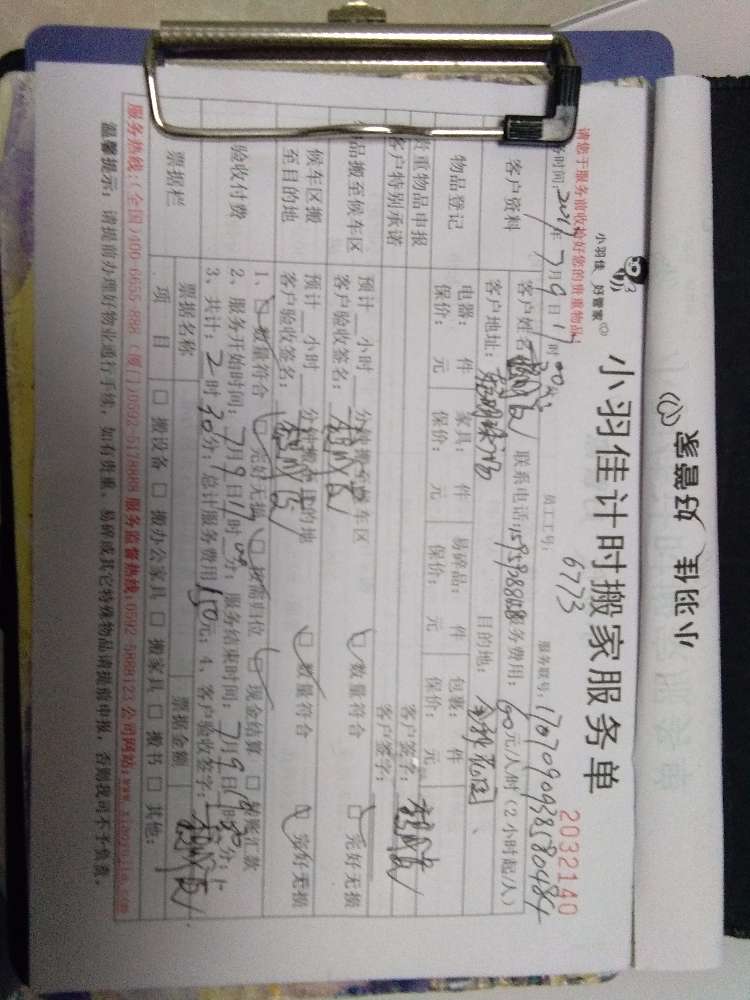 家管好 佳羽小
小羽佳 好管家
小羽佳计时搬家服务单
2032140
请您于服务前收检好您的贵重物品!
时间: 2017年7月9日 时
员工工号: 6773
服务联号:
客户资料
客户姓名 联系电话: 服务费用: 60元/人/时(2小时起/人)
客户地址: 目的地:
物品登记
电器: 件 家具: 件 易碎品: 件 包裹: 件
保价: 元 保价: 元 保价: 元 保价: 元
贵重物品申报 客户签名:
客户特别承诺 客户签字:
品搬至候车区
预计 小时 分钟搬至候车区 数量符合 完好无损
客户验收签名:
候车区搬至目的地
预计 小时 数量符合 完好无损
客户验收签名:
验收付费
1、数量符合 完好无损 按需归位 现金结算 转账汇款
2、服务开始时间: 7月9日 时 分; 服务结束时间: 7月9日 时30分;
3、共计: 2时30分; 总计服务费用150元; 4、客户验收签字:
票据栏
票据名称 票据金额
项 目 搬设备 搬办公家具 搬家具 搬书 其他:
服务热线:(全国)400-6655-888 (厦门)0592-5178888 服务监督热线:0592-5888123 公司网站:www.xiaoyujia.com
温馨提示: 请提前办理好物业通行手续, 如有贵重、易碎或其它特殊物品请提前申报, 否则我司不予负责。